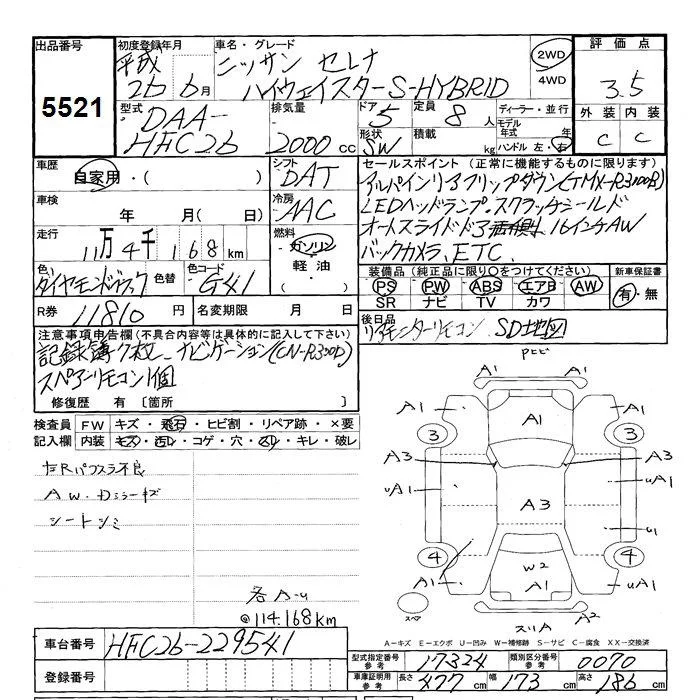 出品番号 初度登録年月 車名・グレード 評価点
5521
平成 26 6月
ニッサン セレナ
ハイウェイスターS-HYBRID
2WD
4WD
3.5
型式 排気量 ドア 定員 ディーラー・並行
DAA-
HFC26
2000 cc
5
8人
モデル
年式 年
形状 積載 kg ハンドル 左・右
SW
外装 内装
C C
車歴 シフト セールスポイント(正常に機能するものに限ります)
自家用・( ) DAT
アルパインリアフリップダウン(TMX-R3000B)
車検 冷房 LEDヘッドランプ.スクラッチシールド
年 月( 日) AAC
オートスライドドア両側 16インチAW
走行 燃料
11万4千168km ガソリン バックカメラ、ETC.
軽油
・( )
色 色替 色コード 装備品(純正品に限り○をつけてください) 新車保証書
ダイヤモンドブラック G41
PS PW ABS エアB AW 有・無
SR ナビ TV カワ
R券 11810円 名変期限 月 日 後日品
リアモニターリモコン SD地図
注意事項申告欄(不具合内容等は具体的に記入して下さい)
記録簿7枚 ナビゲーション(CN-R300D)
スペアーリモコン1個
修復歴 有〔箇所 〕
検査員 FW キズ・飛石・ヒビ割・リペア跡・×要
記入欄 内装 キズ・汚れ・コゲ・穴・スレ・キレ・破レ
左Rパワスラ不良
AW.Dミラーキズ
シートシミ
各A-u
@114.168km
A1 A1 A1
3 3
A3 A3
uA1 uA1
A3
u1
4 4
W2
A1 A1 uA1
スペア スリA A2
A-キズ E-エクボ U-凹み W-補修跡 S-サビ C-腐食 XX-交換済
車台番号 HFC26-229541
型式指定番号 参考 17324 類別区分番号 参考 0070
登録番号
車庫証明用 参考 長さ 477cm 幅 173cm 高さ 186cm